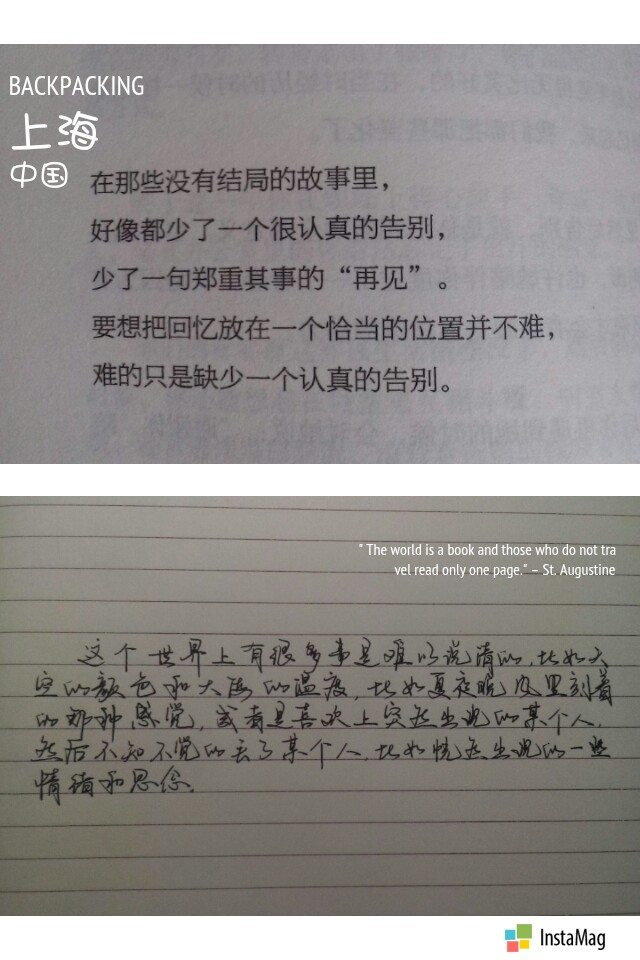 BACKPACKING
上海
中国
在那些没有结局的故事里，
好像都少了一个很认真的告别，
少了一句郑重其事的“再见”。
要想把回忆放在一个恰当的位置并不难，
难的只是缺少一个认真的告别。
" The world is a book and those who do not tra
vel read only one page." – St. Augustine
这个世界上有很多事是难以说清的,比如天
空的颜色和大海的温度,比如夏夜晚风里刻着
的那种感觉,或者是喜欢上突然出现的某个人,
然后不知不觉的丢了某个人,比如恍然出现的一些
情绪和思念.
InstaMag